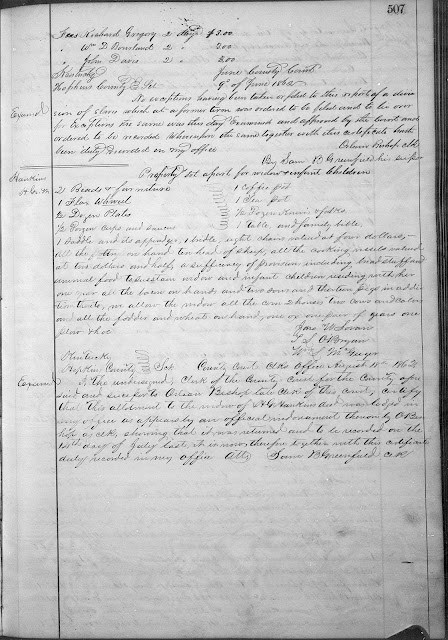 507
Fees Richard Gregory 2 days $3.00
" Wm D Bourland 2 " 3.00
" John Davis 2 " 3.00
Kentucky June County Court
Hopkins County Sct 9th of June 1862
No exceptions having been taken or filed to this report of a divi
sion of slaves which at a former term was ordered to be filed and lie over
Examd for exceptions the same was this day Examined and approved by the Court and
ordered to be recorded. Whereupon the same together with this certificate hath
been duly Recorded in my office Orlean Bishop clk
By Sam B Greenfield his
Hankins Property set apart for widow & infant Children
2 Beads & furniture 1 Coffee pot
1 Flax Wheel 1 Tea pot
½ Dozen Plates ½ Dozen Knives & forks
½ Dozen cups and saucers 1 table, and family bible,
1 Saddle and its appendages, 1 bridle, eight chairs valued at four dollars,
all the poltry on hand ten head of sheep, all the cooking vesels valued
at two dollars and half, a sufficiency of provision including breadstuff and
animal food to sustain widow and infant children residing with her
one year all the bacon on hand, and two sows and thirteen pigs in addi
tion thereto, we allow the widow all the corn 2 horses two cows and calves
and all the fodder and wheat on hand, one pr of gears one
plow & hoe Jas W Sivan
T L O'Bryan
W L McGuyer
Kentucky
Hopkins County Sct County Court Clks Office August 1862
Examd I the undersigned, Clerk of the County Court for the County afore
said and successor to Orlean Bishop late Clerk of this Court, certify
that this allotment to the widow of H G Hankins decd was lodged in
my office as appears by an official endorsement thereon by O Bis
hop as clk, showing that it was returned and to be recorded on the
14th day of July last, it is now, therefore together with this certificate
duly recorded in my office Atts Sam B Greenfield clk